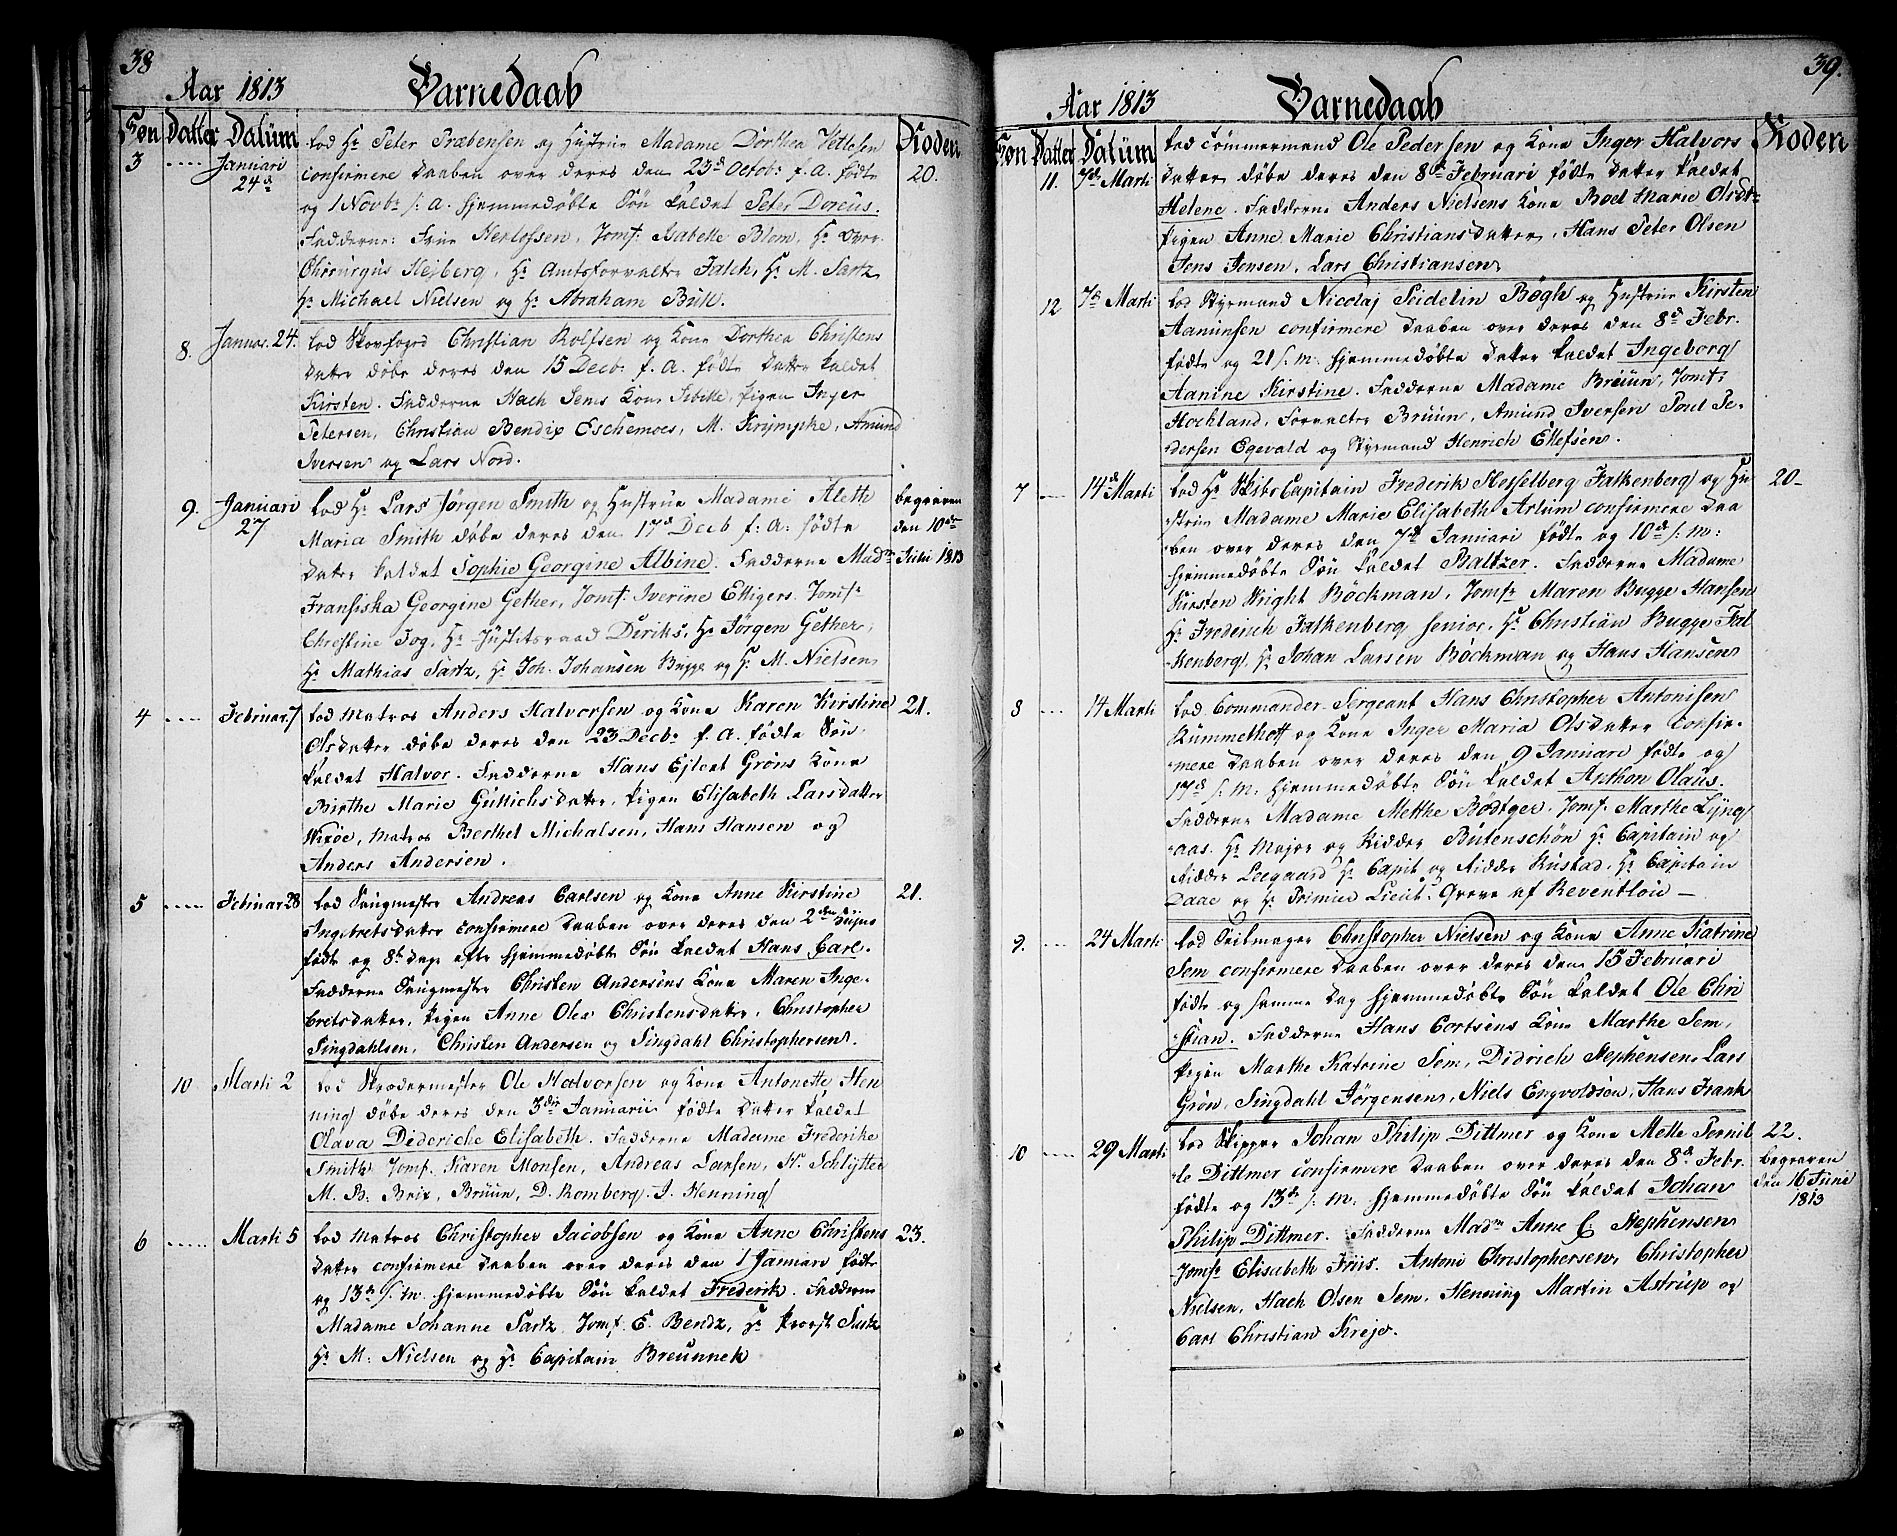 38
Aar 1813 Barnedaab
Søn Datter Datum Koden
3 Januari lod Hr Peter Præbensen og Hustrue Madame Dorthea Vettesen
24d confirmere Daaben over deres den 23d Octobr f. A. fødte 20.
og 1 Novbr s: a. hjemmedøbte Søn kaldet Peter Dorcus.
Fadderne: Frue Herlofsen, Jomf: Isabelle Blom, Hr Over
Chirurgus Hejberg, Hr Amtsforvalter Falch, Hr M. Sartz
Hr Michael Nielsen og Hr Abraham Bull.
8. Januar. 24. lod Skovfoged Christian Rolfsen og Kone Dorthea Christens
datter døbe deres den 15 Decbr f. A. fødte Datter kaldet
Kirsten. Fadderne Hach Sems Kone Sibille, Pigen Inger
Petersen, Christian Bendix Eschemoes, M. Krijmpke, Amund
Iversen og Lars Nord.
9. Januari lod Hr Lars Jørgen Smith og Hustrue Madame Alette begraven
27 Maria Smith døbe deres den 17d Decb f: A: fødte den 10de
Datter kaldet Sophie Georgine Albine. Fadderne Madm Julii 1813
Fransiska Georgine Gether, Jomf. Iverine Ettigers Jomfr
Christine Fog, Hr Justitsraad Deriks, Hr Jørgen Gether,
Hr Mathias Sartz, Hr Joh. Johansen Bugge og Hr M. Nielsen
4 Februar. 7 lod Matros Anders Halvorsen og Kone Karen Kirstine 21.
Olsdatter døbe deres den 23 Decbr f. A. fødte Søn
kaldet Halvor. Fadderne Hans Ejlert Gröns Kone
Birthe Marie Gullichsdatter, Pigen Elisabeth Larsdatter
Wixöe, Matros Berthel Michalsen, Hans Hansen og
Anders Andersen.
5 Februar 28 lod Taugmester Andreas Carlsen og Kone Anne Kirstine 21.
Ingebretsdatter confirmere Daaben over deres den 2den Dujus
fødte og 8de Dag efter hjemmedøbte Søn kaldet Hans Carl.
Fadderne Taugmester Christen Andersens Kone Maren Inge-
bretsdatter, Pigen Anne Olea Christensdatter, Christopher
Singdahlsen, Christen Andersen og Singdahl Christophersen.
10 Marti 2 lod Skrædermester Ole Halvorsen og Kone Antonette Hen
ning døbe deres den 3die Januarii fødte Datter kaldet
Olava Dideriche Elisabeth. Fadderne Madame Frederike
Smith Jomf. Karen Monsen, Andreas Larsen, H. Schlytter
M. B: Brix, Brüün, D. Romberg, J. Henning
6 Marti 5 lod Matros Christopher Jacobsen og Kone Anne Christens 23.
datter confirmere Daaben over deres den 1 Januari fødte
og 13de s. m. hjemmedøbte Søn kaldet Frederik. Fadderne
Madame Johanne Sartz, Jomf. E. Bendz, Hr Provst Sartz
Hr M: Nielsen og Hr Capitain Breunnek
39.
Aar 1813 Barnedaab
Søn Datter Datum Koden
11. 7de Marti lod Tømmermand Ole Pedersen og Kone Inger Halvors
datter døbe deres den 8de Februari fødte Datter kaldet
Helene. Fadderne Anders Nielsens Kone Boel Marie Olsdtr
Pigen Anne Marie Christiansdatter, Hans Peter Olsen
Jens Jensen, Lars Christiansen
12 7de Marti lod Styrmand Nicolaj Seidelin Bøgh og Hustrue Kirsten
Aanunsen confirmere Daaben over deres den 8d Febr.
fødte og 21 s. m. hjemmedøbte Datter kaldet Ingeborg
Aanine Kirstine. Fadderne Madame Brüün, Jomf:
Hochland, Forvalter Brüün, Amund Iversen Poul Pe-
dersen Egevald og Styrmand Henrich Ellefsen.
7 14de Marti lod Hr Skibs Capitain Frederik Hesselberg Falkenberg og Hu 20-
strue Madame Marie Elisabeth Arlum confirmere Daa
ben over deres den 7de Januari fødte og 10de s: m:
hjemmedøbte Søn kaldet Baltzer. Fadderne Madame
Kirsten Wright Böckman, Jomfr Maren Bugge Hansen
Hr Frederich Falkenberg senior, Hr Christian Bugge Fal
kenberg, Hr Johan Larsen Böckman og Hans Hansen
8 14 Marti lod Commander Sergeant Hans Christopher Antonisen
Rummelhoff og Kone Inger Maria Olsdatter Confir-
mere Daaben over deres den 9 Januari fødte og
17de s. m. hjemmedøbte Søn kaldet Anthon Olaus.
Fadderne Madame Metthe Bödtger, Jomf. Marthe Lyng
aas. Hr Major og Ridder Butenschön Hr Capitain og
Ridder Leegaard Hr Capit og Ridder Rustad, Hr Capitain
Daae og Hr Primier Lieut: Greve af Reventlou —
9. 24 Marti lod Seilmager Christopher Nielsen og Kone Anne Katrine
Sem confirmere Daaben over deres den 15 Februari
fødte og samme Dag hjemmedøbte Søn kaldet Ole Chri
stian. Fadderne Hans Cortsens Kone Marthe Sem,
Pigen Marthe Katrine Sem, Didrich Stephensen, Lars
Grön, Singdahl Jörgensen, Niels Engvoldsen, Hans Frank
10 29 Marti lod Skipper Johan Philip Dittmer og Kone Mette Pernil 22.
le Dittmer confirmere Daaben over deres den 8de Febr. begraven
fødte og 13de s. m. hjemmedøbte Søn kaldet Johan den 16 Junii
Philip Dittmer. Fadderne Madm Anne C. Stephensen 1813
Jomfr Elisabeth Friis. Antoni Christophersen, Christopher
Nielsen, Hach Olsen Sem, Henning Martin Astrup og
Carl Christian Krejo.